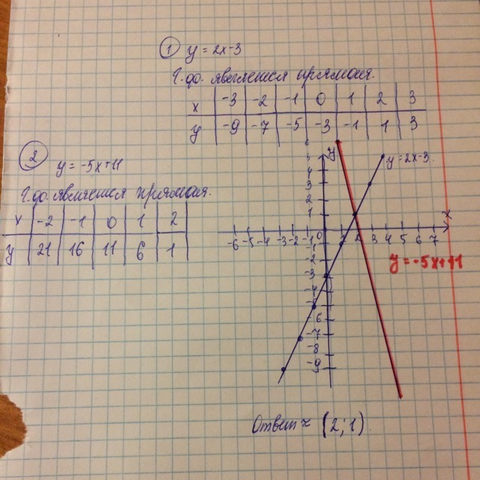 ① y = 2x-3
Г. ф. является прямая.
x | -3 | -2 | -1 | 0 | 1 | 2 | 3
y | -9 | -7 | -5 | -3 | -1 | 1 | 3
② y = -5x+11
Г. ф. является прямая.
x | -2 | -1 | 0 | 1 | 2
y | 21 | 16 | 11 | 6 | 1
y
y = 2x-3
6
5
4
3
2
1
x
-6 -5 -4 -3 -2 -1 0 1 2 3 4 5 6 7
y = -5x+11
-3
-4
-5
-6
-7
-8
-9
Ответ: (2; 1)